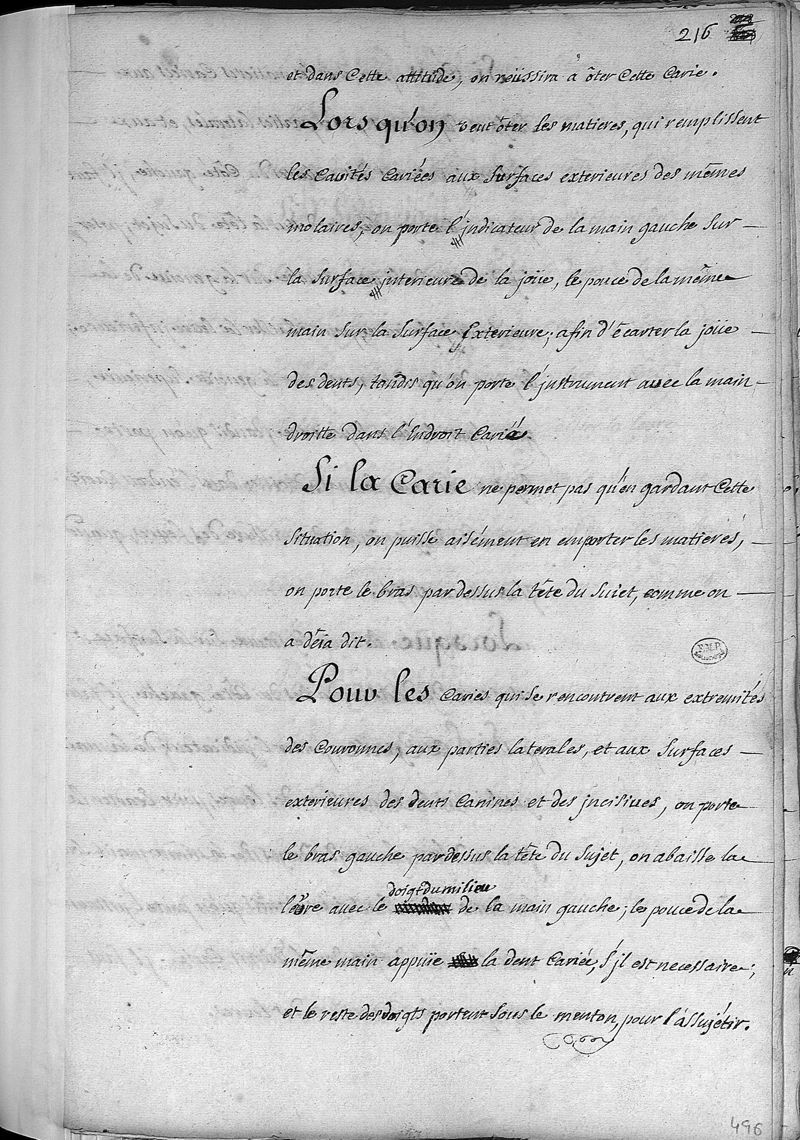 216
et dans Cette attitude, on reüssira à ôter Cette Carie.
Lors qu'on veut ôter les matieres, qui remplissent
les Cavités Cariées aux surfaces exterieures des mêmes
molaires; on porte l'indicateur de la main gauche sur
la surface interieure de la joüe, le pouce de la même
main sur la surface Exterieure; afin d'écarter la joüe
des dents, tandis qu'on porte l'instrument avec la main
droitte dans l'Endroit Carié.
Si la Carie ne permet pas qu'en gardant Cette
situation, on puisse aisément en emporter les matieres,
on porte le bras par dessus la tête du Sujet, comme on
a déja dit.
Pour les Caries qui se rencontrent aux extremités
des Couronnes, aux parties laterales, et aux surfaces
exterieures des dents Canines et des incisives, on porte
le bras gauche par dessus la tête du Sujet, on abaisse la
doigt du milieu
levre avec le de la main gauche; le pouce de la
même main appuïe la dent Cariée, s'jl est necessaire;
et le reste des doigts portent sous le menton, pour l'assujétir.
496